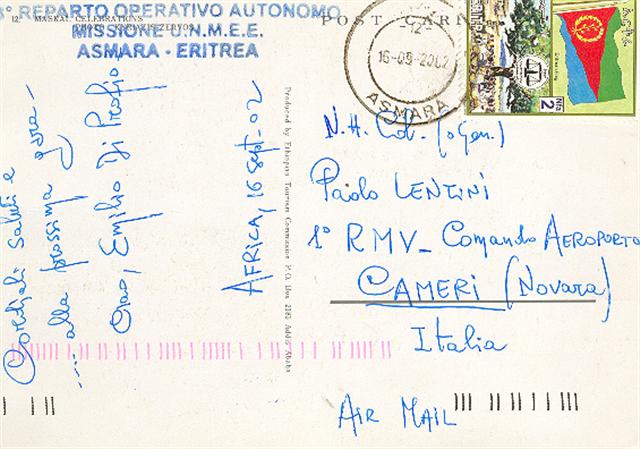 3° REPARTO OPERATIVO AUTONOMO
MISSIONE U.N.M.E.E.
ASMARA - ERITREA
12 MASKAL CELEBRATIONS
POST CARD
12
16-09-2002
ASMARA
2
Cordiali saluti e
.... alla prossima
Ciao, Emilio Di
AFRICA, 16 sept-02
Produced by Ethiopian Tourism Commission P.O. Box 2183 Addis Ababa
N.H. Col. (o Gen.)
Paolo LENTINI
1° RMV - Comando AEROPORTO
CAMERI (Novara)
Italia
AIR MAIL